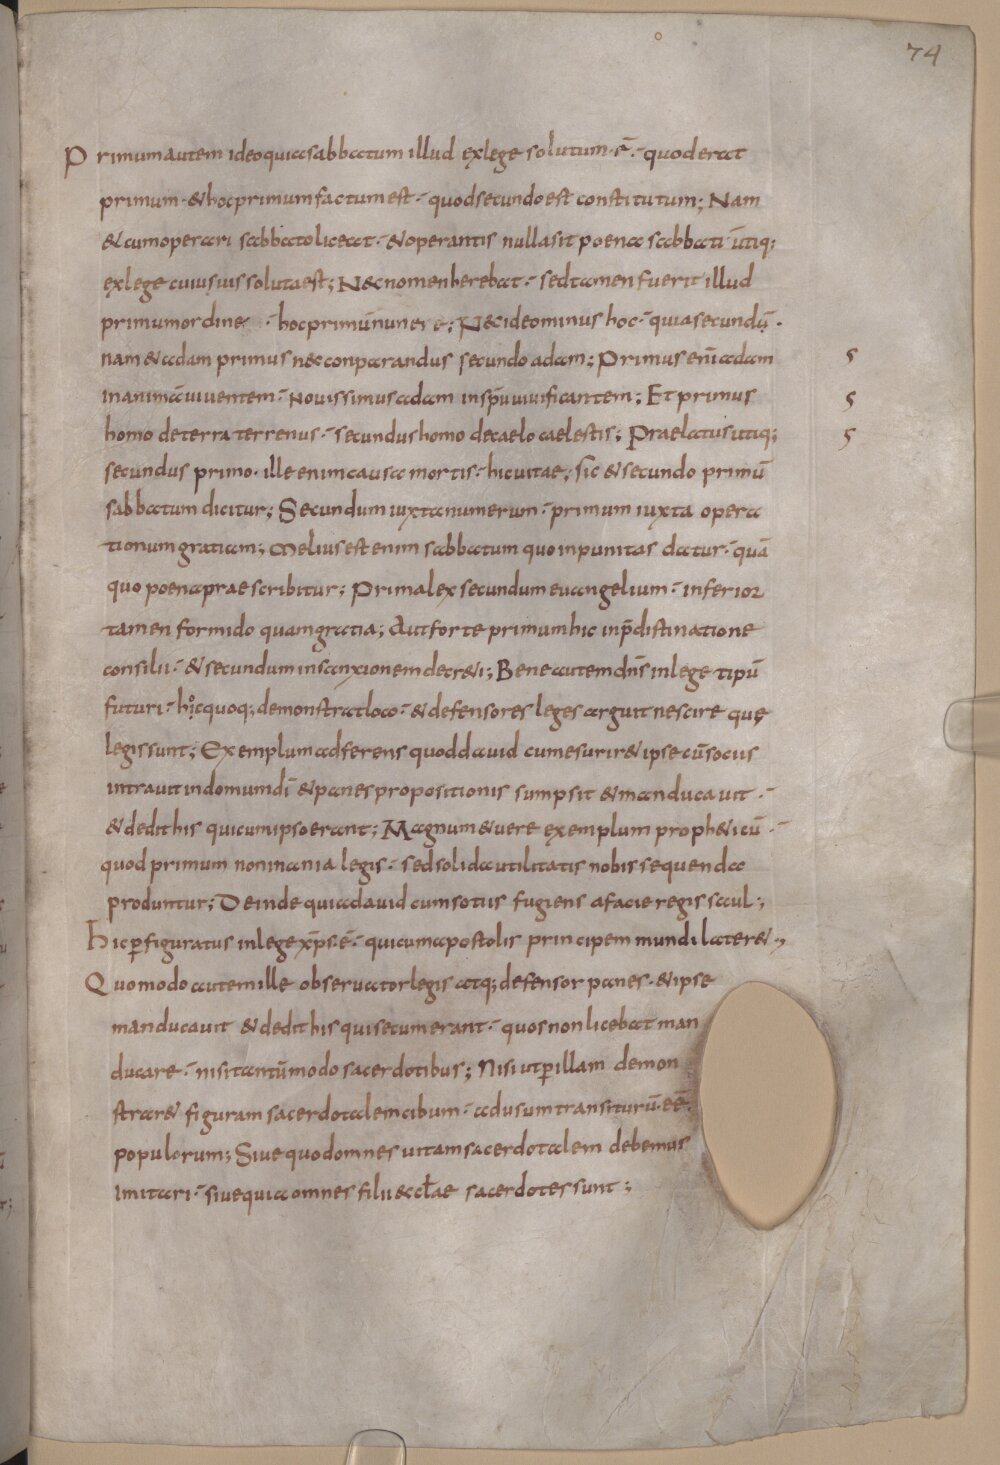 74
Primum autem ideo quia sabbatum illud ex lege solutum ē· quod erat
primum· & hoc primum factum est· quod secundo est constitutum; Nam
& cum operari sabbato liceat· & operantis nulla sit poena sabbati utiq;
ex lege cuius uis soluta est; N& nomen herebat· sed tamen fuerit illud
primum ordine· hoc primū; N& ideo minus hoc· quia secundū·
nam & adam primus nec conparandus secundo adam; Primus enī adam
in animā uiuentem· Nouissimus adam in spū uiuificantem; Et primus
homo de terra terrenus· secundus homo de caelo caelestis; Praelatus utiq;
secundus primo· ille enim causa mortis· hic uitae; sic & secundo primū
sabbatum dicitur; Secundum iuxta numerum· primum iuxta opera
tionum gratiam; Melius est enim sabbatum quo inpunitas datur· quā
quo poena praescribitur; Prima lex secundum euangelium· inferior
tamen formido quam gratia; Aut forte primum hic in p̄distinatione
consilii· & secundum in sanxionem decr&i; Bene autem dn̄s in lege tipū
futuri· hic quoq; demonstrat loco· & defensores leges arguit nescire quę
legis sunt; Exemplum adferens quod dauid cum esurir& ipse cū sociis
intrauit in domum dī & panes propositionis sumpsit & manducauit·
& dedit his qui cum ipso erant; Magnum & uere exemplum proph&icū·
quod primum non inania legis· sed solida utilitatis nobis sequenda
produntur; Deinde quia dauid cum sotiis fugiens a facie regis saul;
hic p̄figuratus in lege xp̄s ē· qui cum apostolis principem mundi later&;
Quomodo autem ille obseruator legis atq; defensor panes· & ipse
manducauit & dedit his qui secum erant· quos non licebat man
ducare· nisi tantūmodo sacerdotibus; Nisi ut p̄ illam demon
strar& figuram sacerdotalem cibum· ad usum transiturū eē·
populorum; Siue quod omnes uitam sacerdotalem debemus
imitari· siue quia omnes filii eccłae sacerdotes sunt;